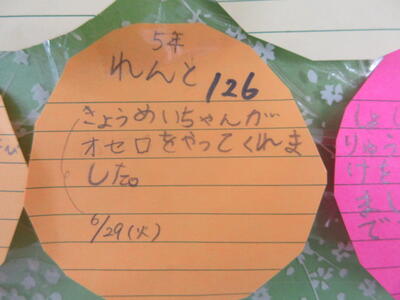 5年
れんと 126
きょうめいちゃんが
オセロをやってくれま
した。
6/29(火)
び
しょし
りゅう
けを
まし
で